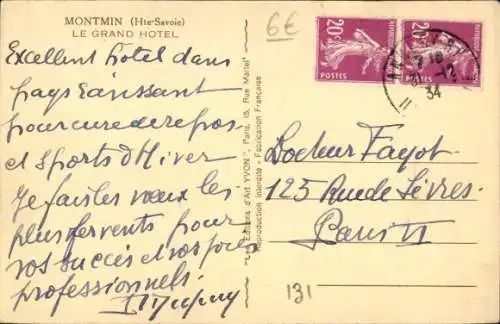 MONTMIN (Hte-Savoie)
LE GRAND HOTEL
Excellent hotel dans
pays ravissant
pour cure de repos
et Sports d'Hiver
Je fais les vœux les
plus fervents pour
vos succès et vos joies
professionnels.
"Les Editions d'Art YVON", Paris, 15, Rue Martel
Reproduction interdite - Fabrication Française
6€
20c
POSTES
20c
POSTES
12
34
Docteur Fayot
125 Rue de Sèvres
Paris VI
131